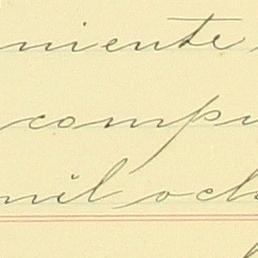 niente
compu
mil och